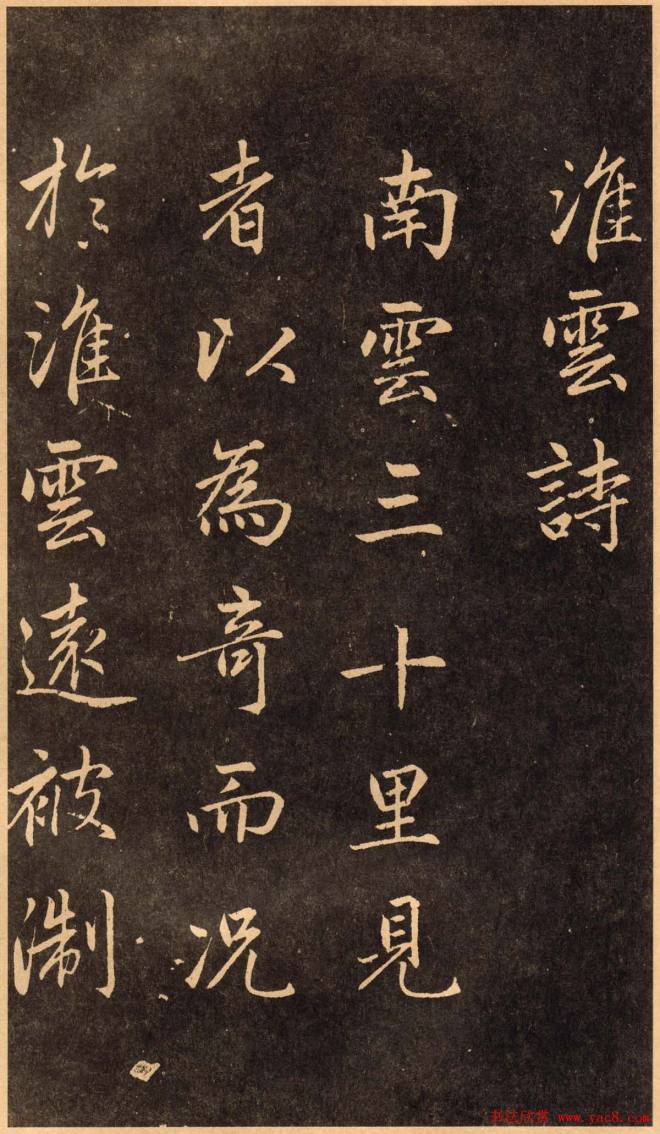 淮雲詩
南雲三十里見
者以為奇而况
於淮雲遠被淛
书法欣赏 www.yac8.com